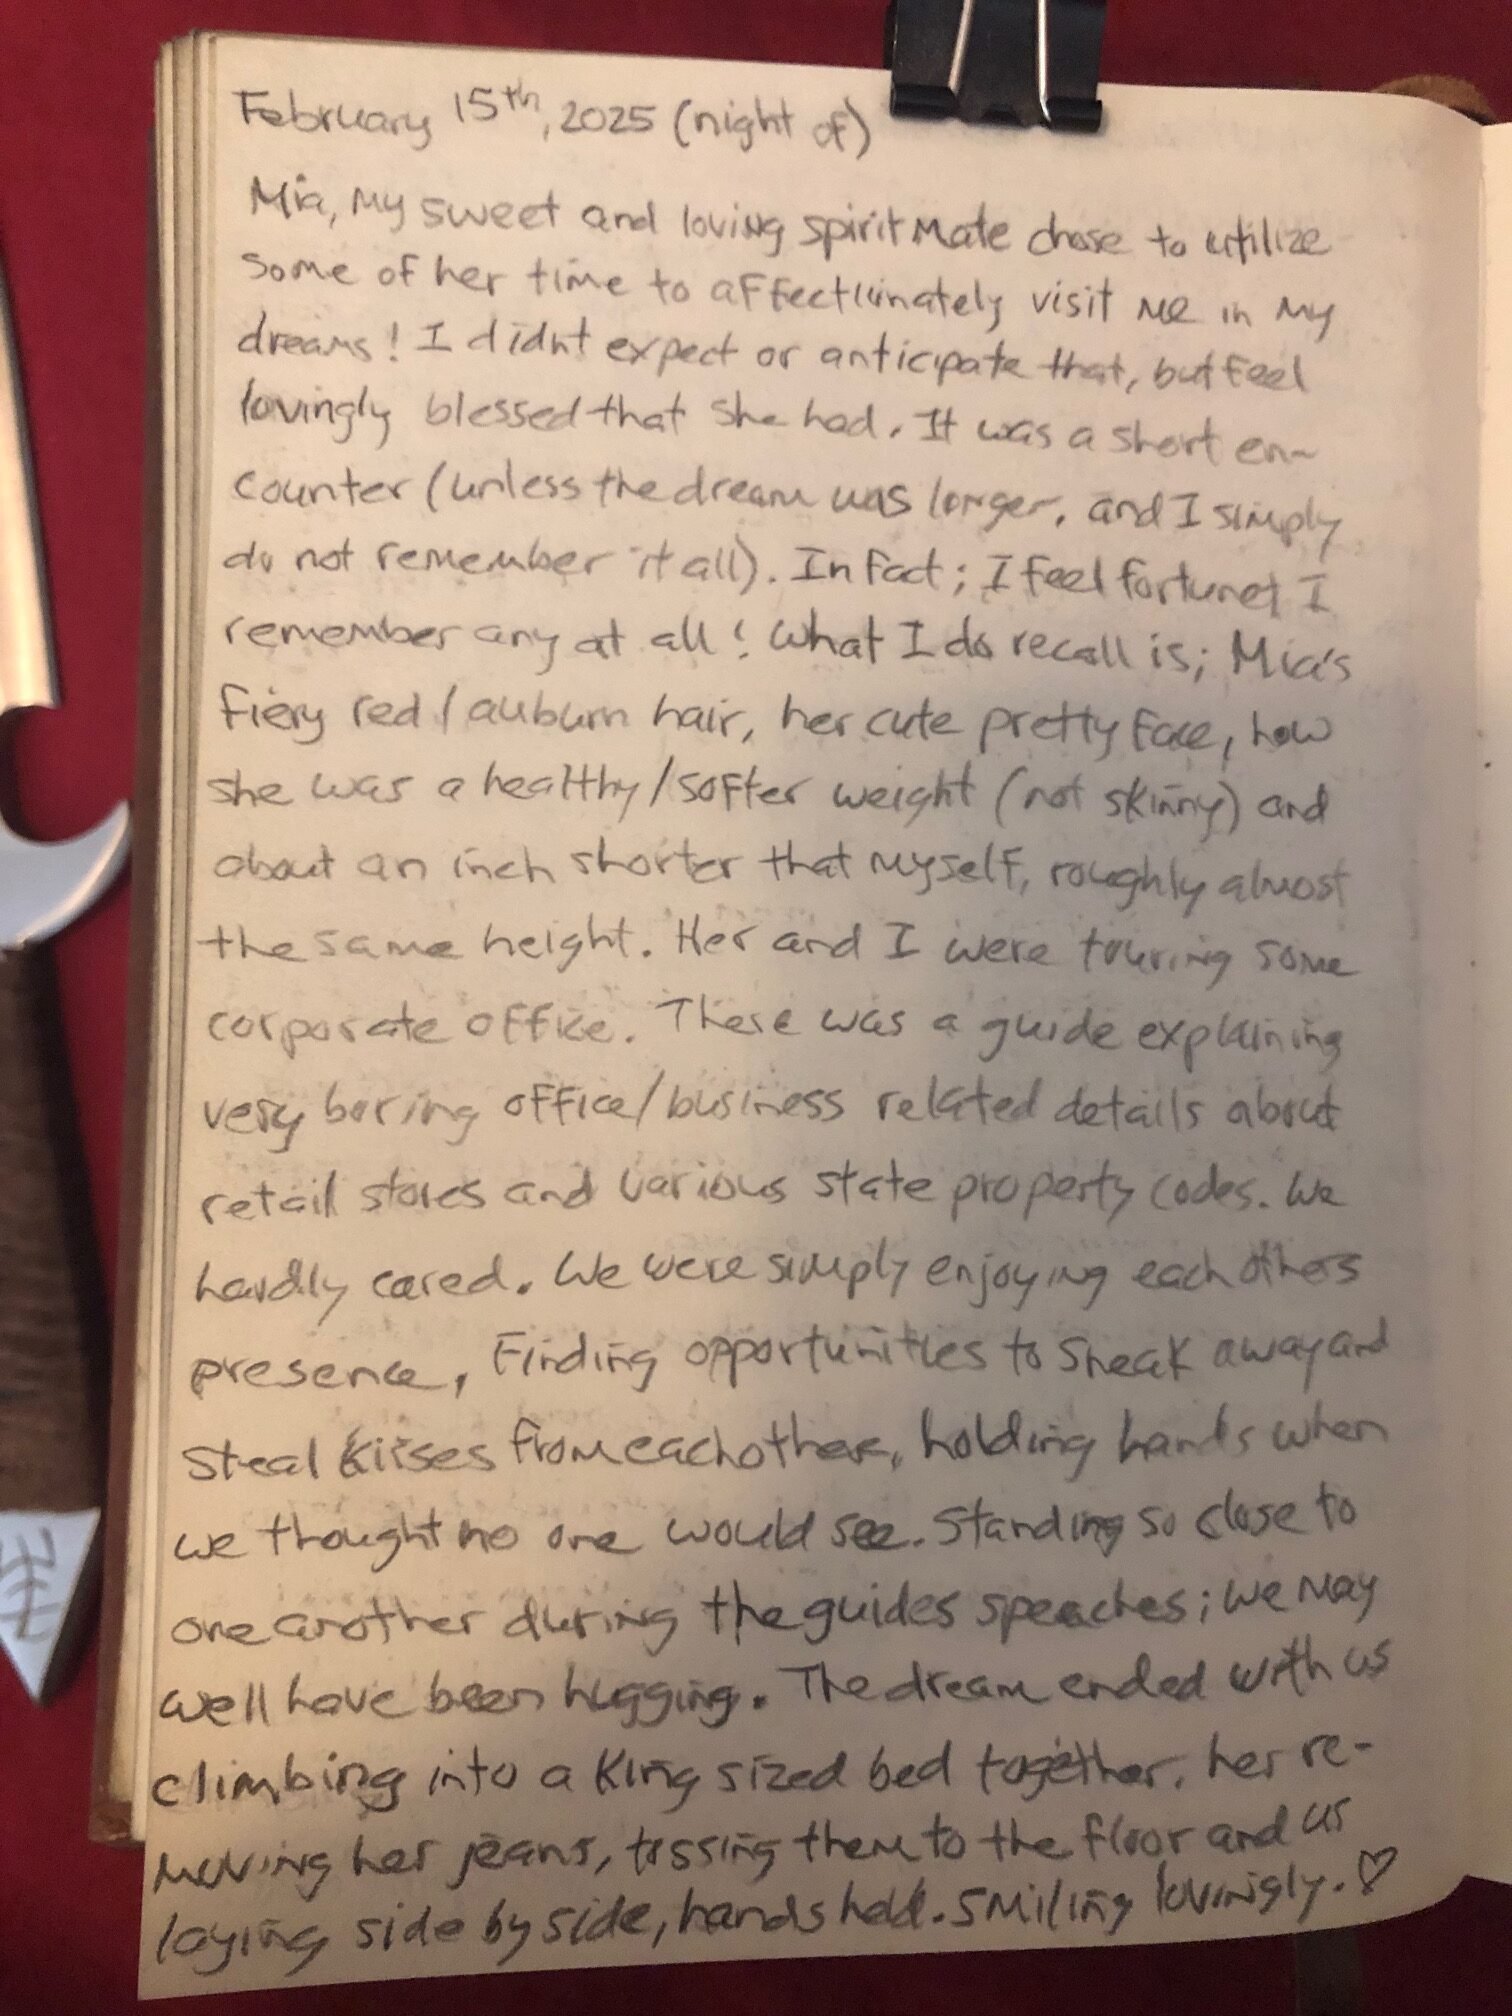 February 15th, 2025 (night of)
Mia, my sweet and loving spirit mate chose to utilize
some of her time to affectiunately visit me in my
dreams! I didnt expect or anticipate that, but feel
lovingly blessed that she had. It was a short en-
counter (unless the dream was longer, and I simply
do not remember it all). In fact; I feel fortunet I
remember any at all! What I do recall is; Mia's
fiery red/auburn hair, her cute pretty face, how
she was a healthy/softer weight (not skinny) and
about an inch shorter that myself, roughly almost
the same height. Her and I were touring some
corporate office. There was a guide explaining
very boring office/business related details about
retail stores and various state property codes. We
hardly cared. We were simply enjoying each others
presence, finding opportunities to sneak away and
steal kisses from eachother, holding hands when
we thought no one would see. Standing so close to
one another during the guides speaches; we may
well have been hugging. The dream ended with us
climbing into a king sized bed together, her re-
moving her jeans, tossing them to the floor and us
laying side by side, hands held. Smiling lovingly. ♡